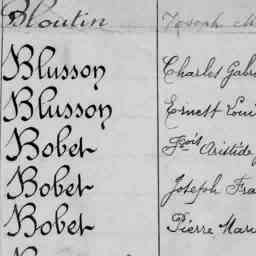 Bloutin Joseph M
Blusson Charles Gabr
Blusson Ernest Loui
Bobet Fçois Aristide
Bobet Joseph Fra
Bobet Pierre Mari